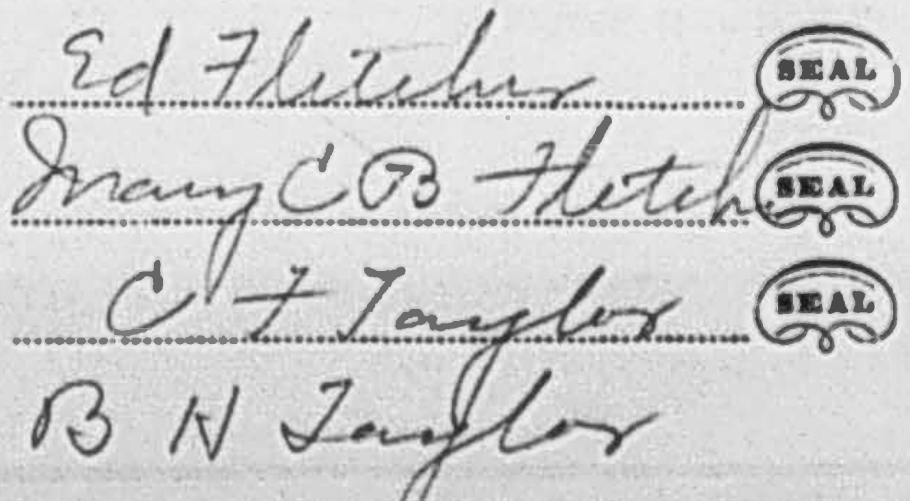 Ed Fletcher SEAL
Mary C B Fletch SEAL
C F Taylor SEAL
B H Taylor